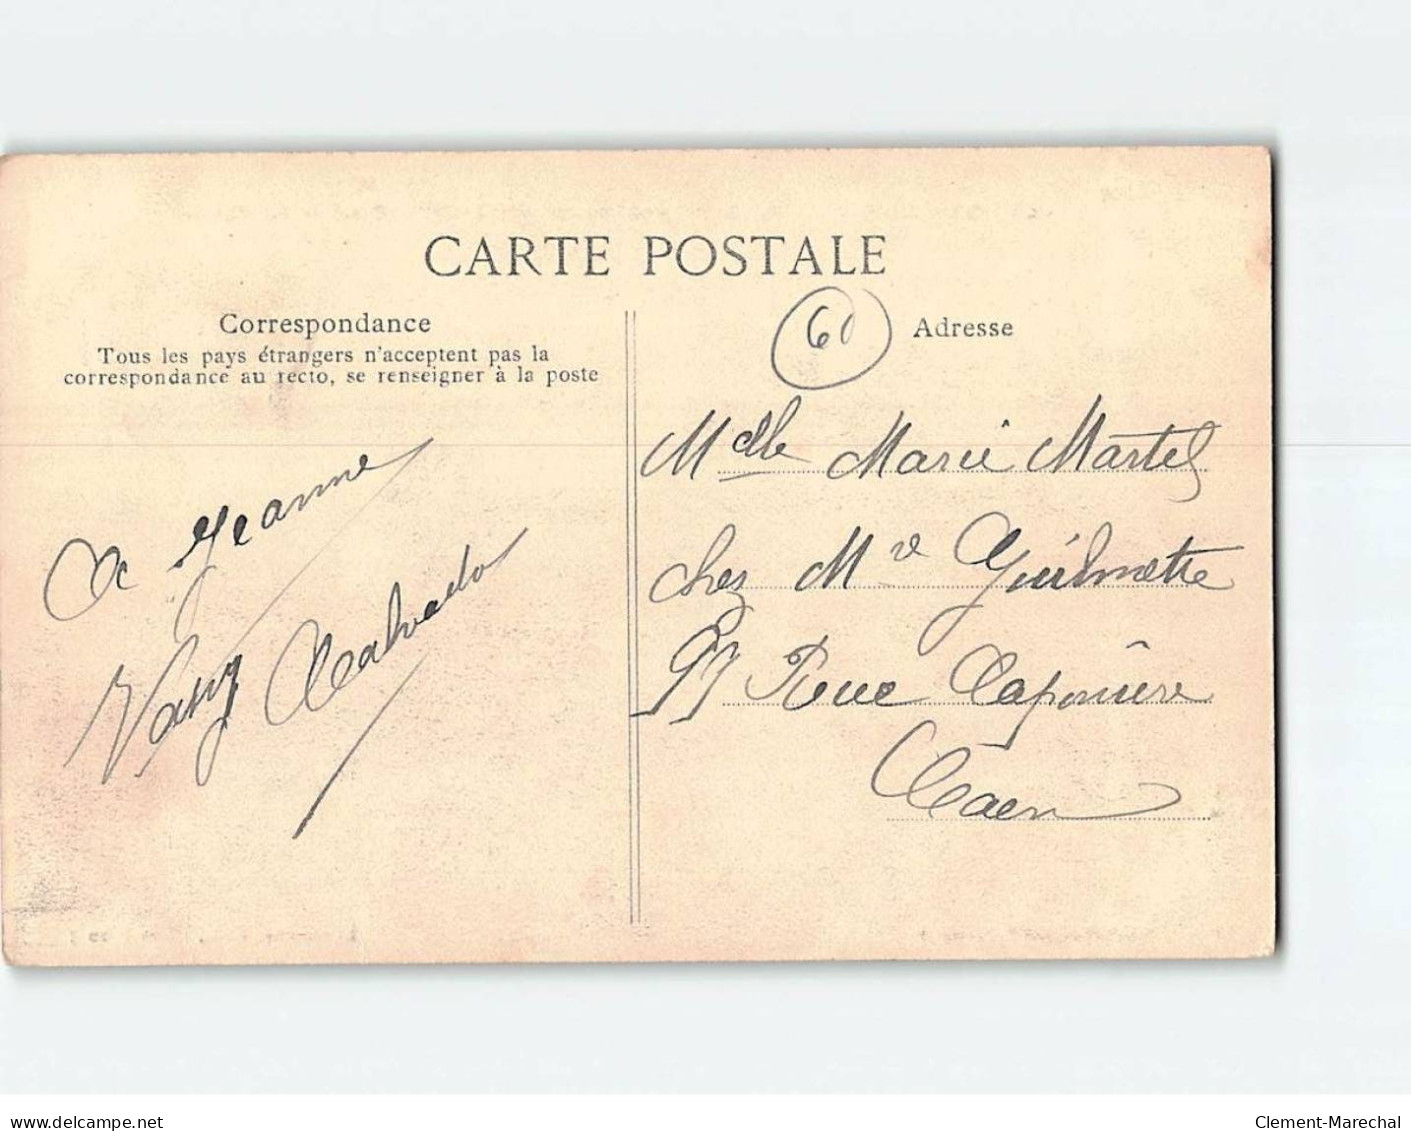 CARTE POSTALE
Correspondance
Tous les pays étrangers n'acceptent pas la
correspondance au recto, se renseigner à la poste
A Jeanne
Calvados
60
Adresse
Melle Marie Martel
chez Mre Guilmette
97 Rue Caponière
Caen
www.delcampe.net
Clement-Marechal